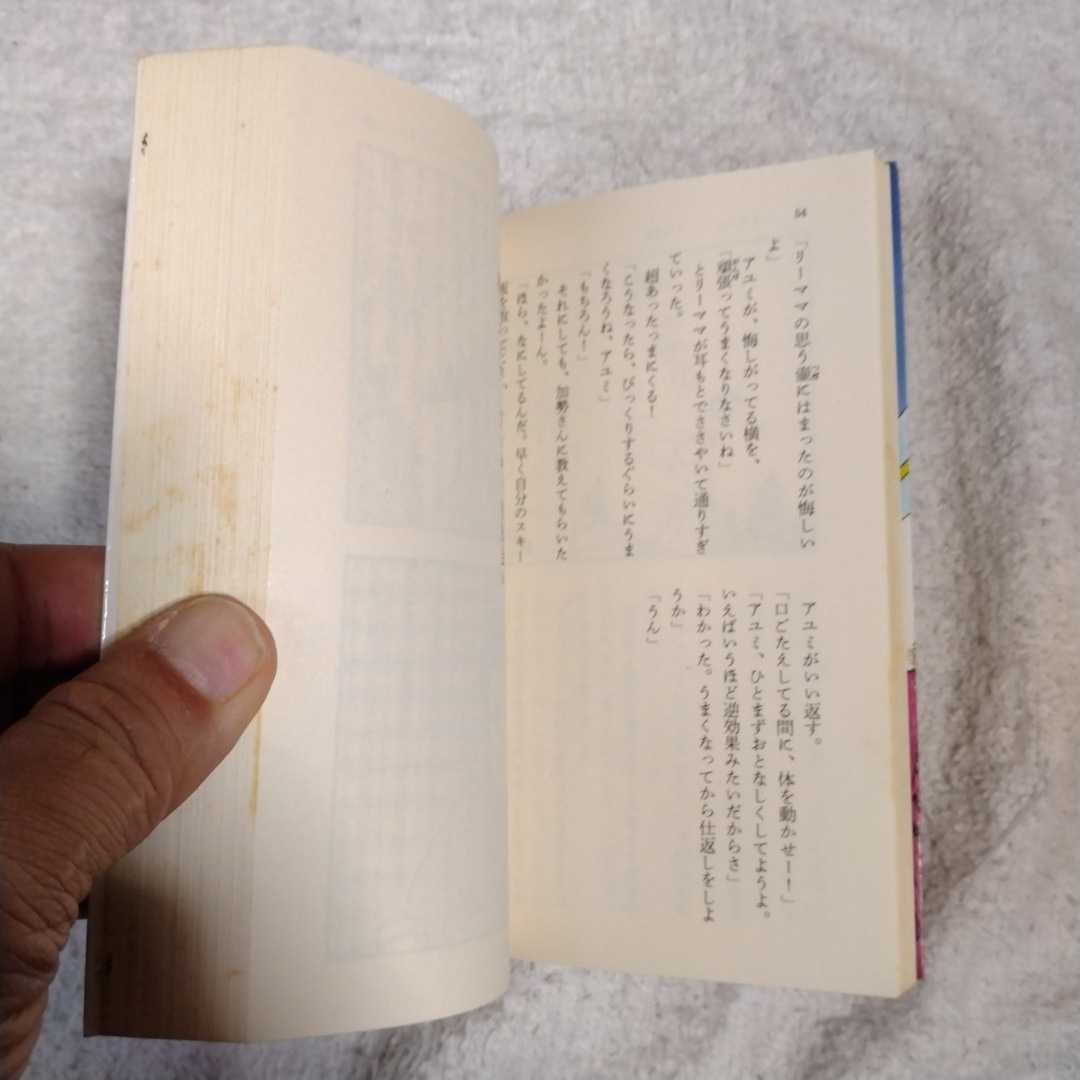 54
「リーママの思う壷にはまったのが悔しい
よ」
アユミが、悔しがってる横を、
「頑張ってうまくなりなさいね」
とリーママが耳もとでささやいて通りすぎ
ていった。
超あったっまにくる！
「こうなったら、びっくりするぐらいにうま
くなろうね、アユミ」
「もちろん！」
それにしても、加勢さんに教えてもらいた
かったよーん。
「ほら、なにしてるんだ。早く自分のスキー
アユミがいい返す。
「口ごたえしてる間に、体を動かせー！」
「アユミ、ひとまずおとなしくしてようよ。
いえばいうほど逆効果みたいだからさ」
「わかった。うまくなってから仕返しをしよ
うか」
「うん」